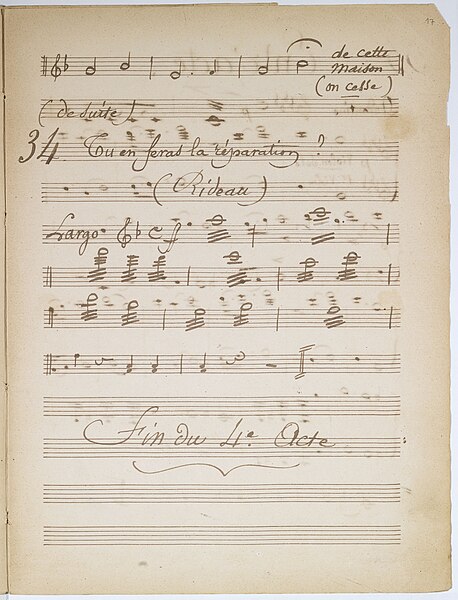 17
de cette
maison
(on cesse)
(de suite)
34 Tu en feras la réparation ?
(Rideau)
Largo. C f
Fin du 4e Acte